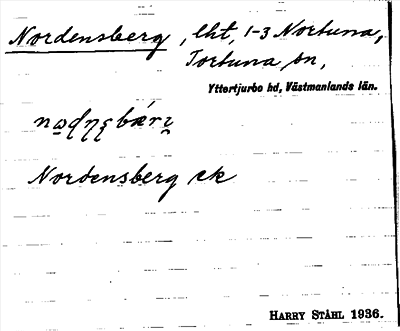 Nordensberg, lht, 1-3 Nortuna,
Tortuna sn,
Yttertjurbo hd, Västmanlands län.
Nordensberg ek
HARRY STÅHL 1936.